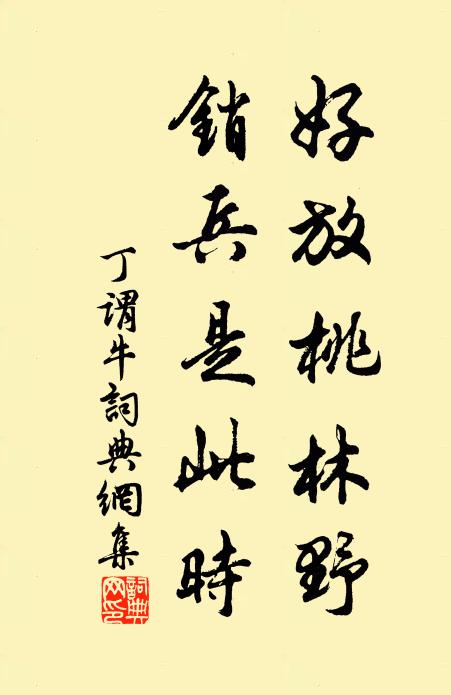 好放桃林野
銷兵是此時
丁謂牛詞典網集
詞典网印